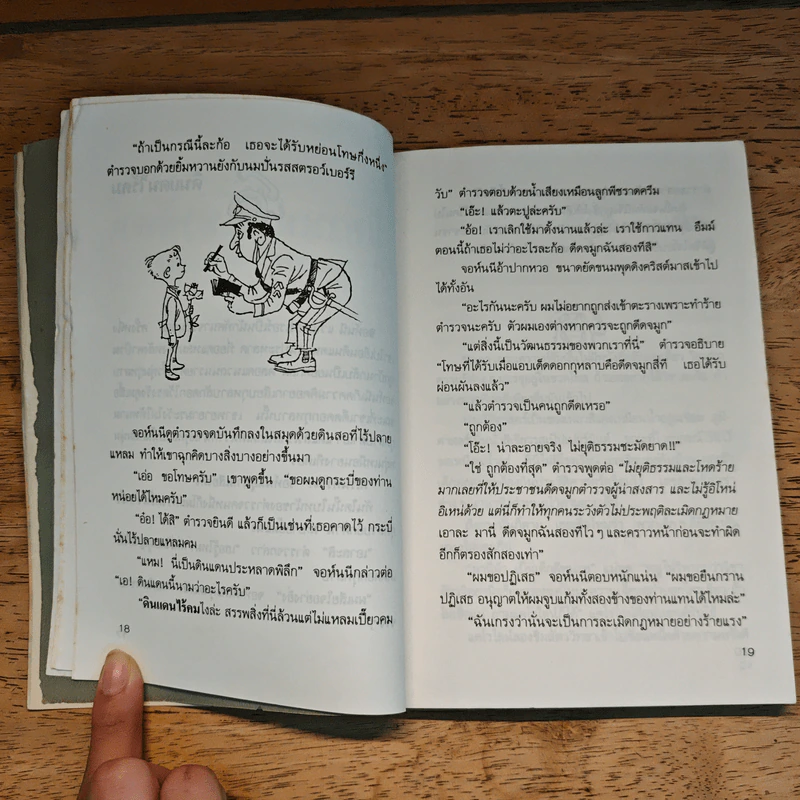 "ถ้าเป็นกรณีนี้ละก้อ เธอจะได้รับหย่อนโทษกึ่งหนึ่ง"
ตำรวจบอกด้วยยิ้มหวานยังกับนมปั่นรสสตรอว์เบอร์รี
จอห์นนีดูตำรวจจดบันทึกลงในสมุดด้วยดินสอที่ไร้ปลาย
แหลม ทำให้เขาฉุกคิดบางสิ่งบางอย่างขึ้นมา
"เอ่อ ขอโทษครับ" เขาพูดขึ้น "ขอผมดูกระบี่ของท่าน
หน่อยได้ไหมครับ"
"อ๋อ! ได้สิ" ตำรวจยินดี แล้วก็เป็นเช่นที่เธอคาดไว้ กระบี่
นั่นไร้ปลายแหลมคม
"แหม! นี่เป็นดินแดนประหลาดพิลึก" จอห์นนีกล่าวต่อ
"เอ! ดินแดนนี้นามว่าอะไรครับ"
"ดินแดนไร้คมไงล่ะ สรรพสิ่งที่นี่ล้วนแต่ไม่แหลมเปี๊ยวคม
18
วับ" ตำรวจตอบด้วยน้ำเสียงเหมือนลูกพีชราดครีม
"เอ๊ะ! แล้วตะปูล่ะครับ"
"อ้อ! เราเลิกใช้มาตั้งนานแล้วล่ะ เราใช้กาวแทน อืมม์
ตอนนี้ถ้าเธอไม่ว่าอะไรละก้อ ดีดจมูกฉันสองทีสิ"
จอห์นนีอ้าปากหวอ ขนาดยัดขนมพุดดิงคริสต์มาสเข้าไป
ได้ทั้งอัน
"อะไรกันนะครับ ผมไม่อยากถูกส่งเข้าตะรางเพราะทำร้าย
ตำรวจนะครับ ตัวผมเองต่างหากควรจะถูกดีดจมูก"
"แต่สิ่งนี้เป็นวัฒนธรรมของพวกเราที่นี่" ตำรวจอธิบาย
"โทษที่ได้รับเมื่อแอบเด็ดดอกกุหลาบคือดีดจมูกสี่ที เธอได้รับ
ผ่อนผันลงแล้ว"
"แล้วตำรวจเป็นคนถูกดีดเหรอ"
"ถูกต้อง"
"โอ๊ะ! น่าละอายจริง ไม่ยุติธรรมชะมัดยาด!!"
"ใช่ ถูกต้องที่สุด" ตำรวจพูดต่อ "ไม่ยุติธรรมและโหดร้าย
มากเลยที่ให้ประชาชนดีดจมูกตำรวจผู้น่าสงสาร และไม่รู้อิโหน่
อิเหน่ด้วย แต่นี่ก็ทำให้ทุกคนระวังตัวไม่ประพฤติละเมิดกฎหมาย
เอาละ มานี่ ดีดจมูกฉันสองทีไวๆ และคราวหน้าก่อนจะทำผิด
อีกก็ตรองสักสองเท่า"
"ผมขอปฏิเสธ" จอห์นนีตอบหนักแน่น "ผมขอยืนกราน
ปฏิเสธ อนุญาตให้ผมจูบแก้มทั้งสองข้างของท่านแทนได้ไหมล่ะ"
"ฉันเกรงว่านั่นจะเป็นการละเมิดกฎหมายอย่างร้ายแรง"
19